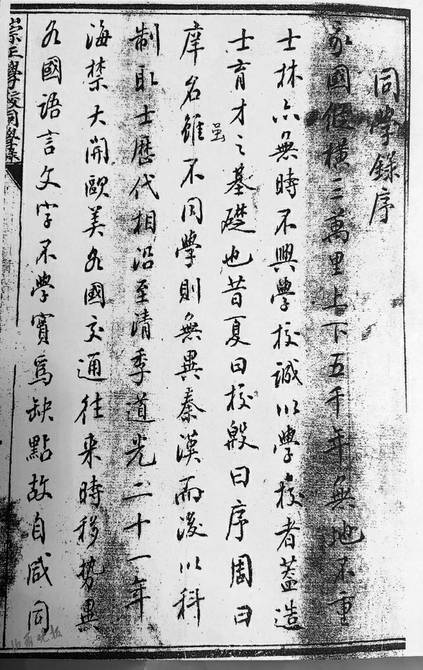 同學錄序
我國縱橫三萬里上下五千年無地不重
士林亦無時不興學校誠以學校者蓋造
士育才之基礎也昔夏曰校殷曰序周曰
庠名雖不同學則無異秦漢而後以科
雖
制取士歷代相沿至清季道光二十一年
海禁大開歐美各國交通往來時移勢異
各國語言文字不學實爲缺點故自咸同
崇正學校同學錄